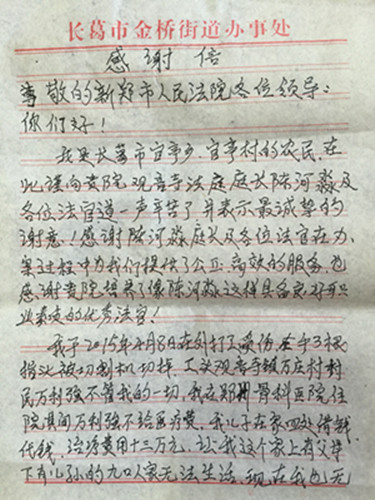 长葛市金桥街道办事处
感谢信
尊敬的新郑市人民法院各位领导:
你们好!
我是长葛市官亭乡、官亭村的农民,在
此谨向贵院观音寺法庭庭长陈河淼及
各位法官道一声辛苦了并表示最诚挚的
谢意!感谢陈河淼庭长及各位法官在办
案过程中为我们提供了公正、高效的服务,也
感谢贵院培养了像陈河淼这样具备良好职
业素质的优秀法官!
我于2015年4月8日在外打工受伤,右手3根
指头被切割机切掉,工头观音寺镇万庄村村
民万利强不管我的一切,我在郑州骨科医院住
院期间万利强不给医疗费,我儿子在家四处借钱
代钱,治疗费用十三万元,让我这个家上有父母
下有儿孙的九口人家无法生活,现在我也无